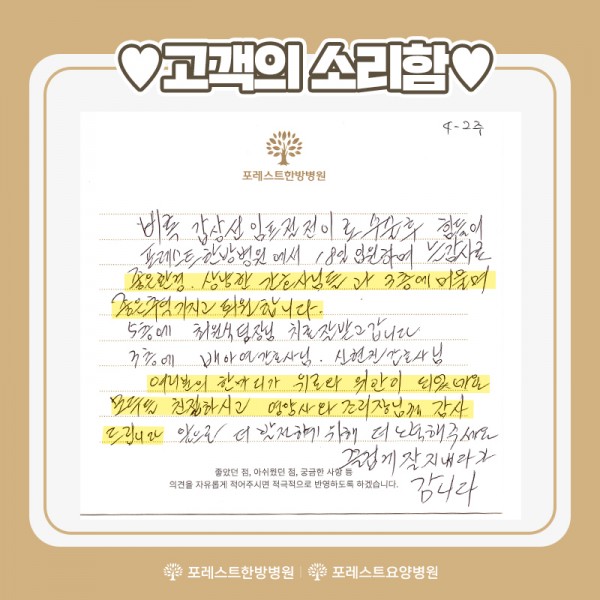 ♥고객의 소리함♥
4-2주
포레스트한방병원
비록 갑상선 임파절 전이로 수술후 힘들어
포레스트한방병원에서 18일 입원하며
좋은환경. 상냥한 간호사님들과 3층에 머물며
좋은추억 가지고 퇴원합니다.
5층에 최원석팀장님 치료잘받고갑니다
3층에 배아연간호사님. 신현진간호사님
여러분의 한마디가 위로와 위안이 되었네요
모두들 친절하시고 영양사와 조리장님께 감사
드립니다 앞으로 더 발전하기 위해 더 노력해주세요
즐겁게 잘지내다가
갑니다
좋았던 점, 아쉬웠던 점, 궁금한 사항 등
의견을 자유롭게 적어주시면 적극적으로 반영하도록 하겠습니다.
포레스트한방병원 | 포레스트요양병원